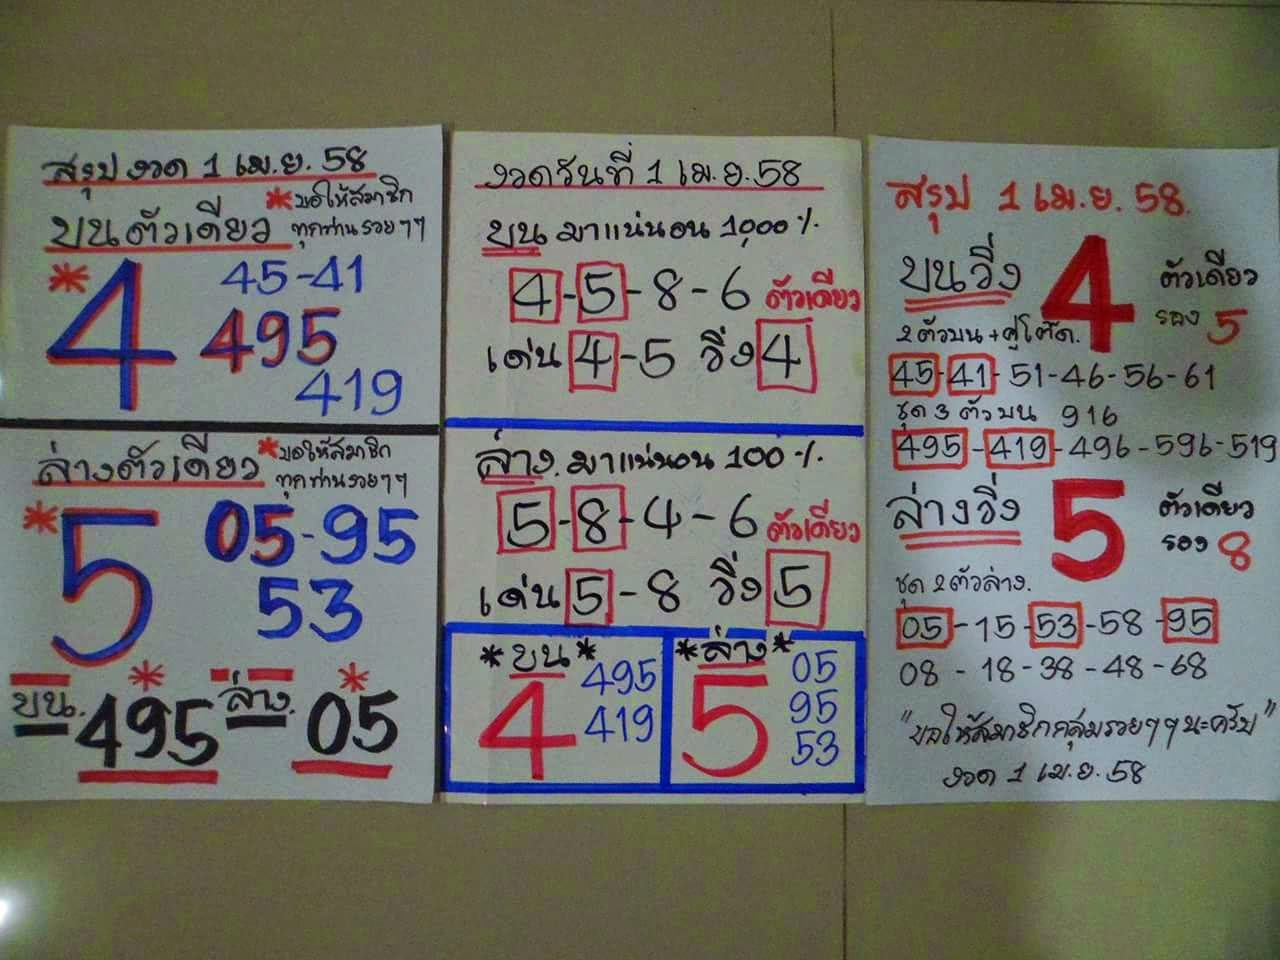 สรุป งวด 1 เม.ย. 58
บนตัวเดียว
*ขอให้สมาชิก
ทุกท่านรวยๆๆ
*4
45-41
495
419
ล่างตัวเดียว
*ขอให้สมาชิก
ทุกท่านรวยๆๆ
*5
05-95
53
บน. 495 ล่าง. 05
งวดวันที่ 1 เม.ย. 58
บน มาแน่นอน 1000%
4-5-8-6 ตัวเดียว
เด่น 4-5 วิ่ง 4
ล่าง. มาแน่นอน 100%
5-8-4-6 ตัวเดียว
เด่น 5-8 วิ่ง 5
*บน*
4
495
419
*ล่าง*
5
05
95
53
สรุป 1 เม.ย. 58.
บนวิ่ง 4 ตัวเดียว
รอง 5
2 ตัวบน + คู่โต๊ด.
45-41-51-46-56-61
ชุด 3 ตัวบน 916
495-419-496-596-519
ล่างวิ่ง 5 ตัวเดียว
รอง 8
ชุด 2 ตัวล่าง.
05-15-53-58-95
08-18-38-48-68
"ขอให้สมาชิกกลุ่มรวยๆๆนะครับ"
งวด 1 เม.ย. 58